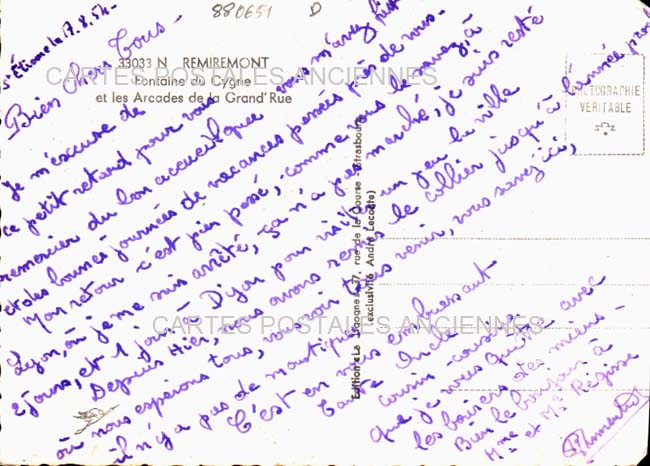 880651 D
St Étienne le 17.8.54.
33033 N REMIREMONT
Fontaine du Cygne
et les Arcades de la Grand'Rue
CARTES POSTALES ANCIENNES
PHOTOGRAPHIE
VÉRITABLE
Bien Chers Tous -
Je m'excuse de
ce petit retard pour vous
remercier du bon accueil que vous m'avez fait
et des bonnes journées de vacances passées près de vous.
Mon retour c'est bien passé, comme vous le savez à
Lyon, où je me suis arrêté, ça n'a pas marché, je suis resté
2 jours, et 1 jour à Dijon pour visiter un peu la ville
Depuis Hier, nous avons repris le collier jusqu'à l'année proch
où nous espérons tous, vous voir venir, vous savez ici,
il n'y a pas de
C'est en vous embrassant
que je vous quitte avec
les baisers des miens -
Bien le bonjour à
Mme et Mr Régisse
Edition "La Cigogne", 37, rue de la Course - Strasbourg
(exclusivité André Lecomte)
CARTES POSTALES ANCIENNES